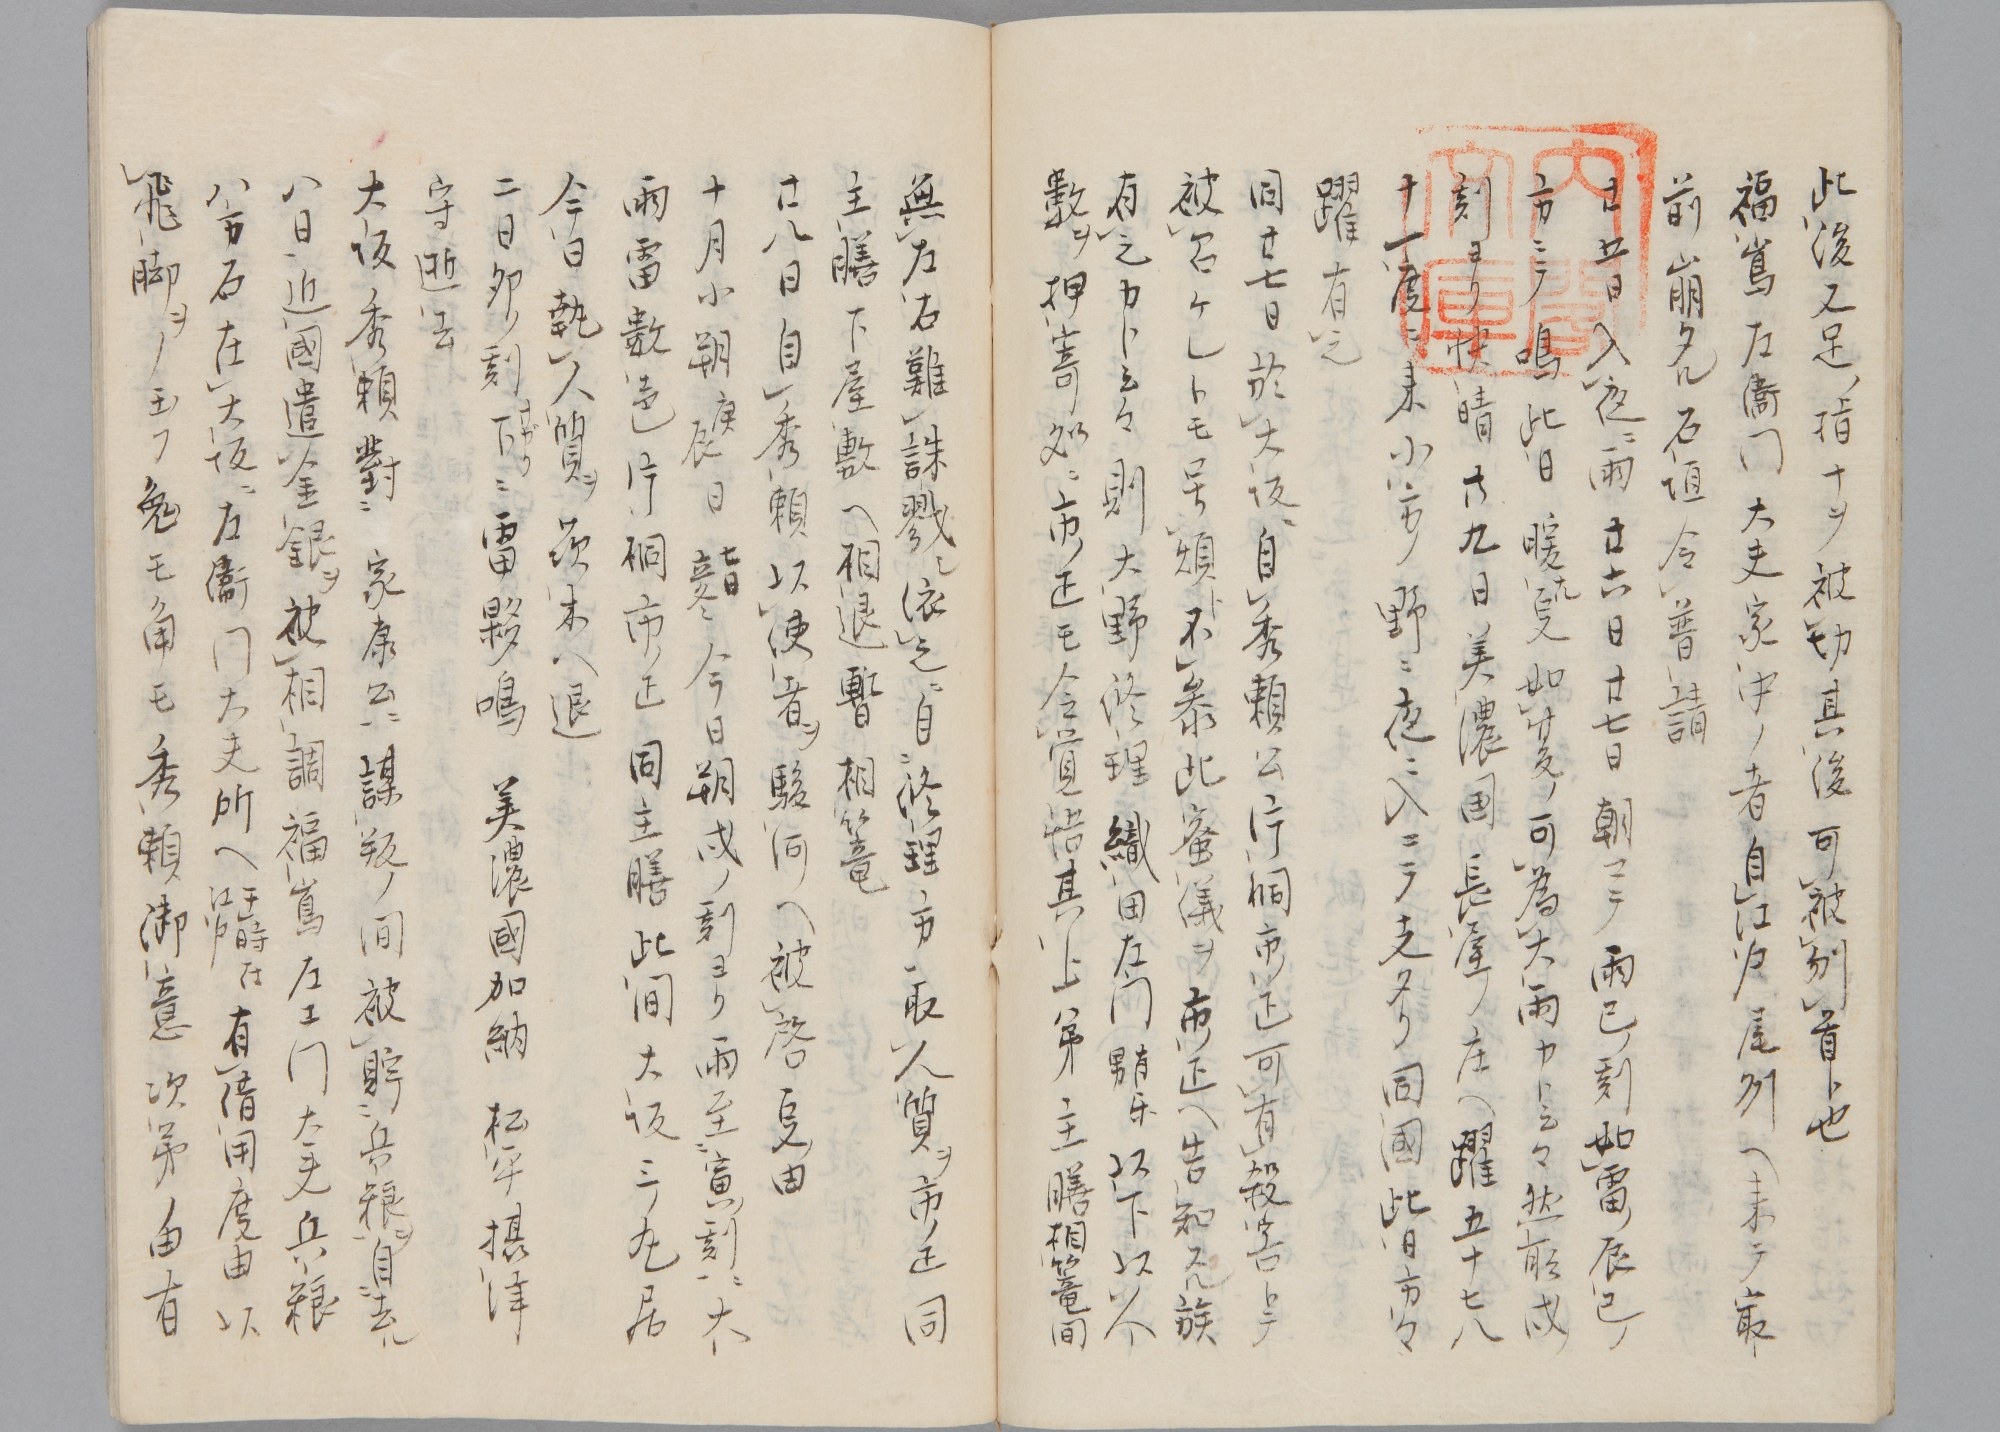 此後又足ノ指ナヲ被切其後可被刎首ト也
福嶌左衛門大夫家中ノ者自江戸尾州ヘ来テ最
前崩タル石垣令普請
廿五日入夜ニ雨廿六日廿七日朝マテ雨巳ノ刻如雷ノ辰巳ノ
方ニテ鳴此日暖気如夏ノ可為大雨カト云々然所戌
刻ヨリ快晴廿九日美濃国長屋ノ庄ヘ躍五十七八
十一度ニ来小市ノ野ニ夜ニ入ニテ走タリ同國此日方々
躍有之
同廿七日於大坂自秀頼公片桐市正可有殺害トテ
被召ケレトモ号煩ト不参此蜜儀ヲ市正ヘ告知ル族
有之カト云々則大野修理織田左門有楽男以下以人
數ヲ押寄処ニ市ノ正モ令覚悟其上弟主膳相篭間
無左右難誅戮依之自修理方取人質ヲ市ノ正同
主膳下屋敷ヘ相退暫相篭
廿八日自秀頼以使者ヲ駿河ヘ被啓夏由
十月小朔庚辰日七日冬今日朔戌ノ刻ヨリ雨至寅刻ニ大
雨雷數遍片桐市ノ正同主膳此間大坂三ノ丸居
今日執人質ヲ茨木ヘ退
二日卯ノ刻下サガリニ雷夥鳴 美濃國加納 松平摂津
守逝去
大坂秀頼對ニ家康公ニ謀叛ノ間被貯兵粮ヲ自去ル
八日近國遣金銀ヲ被相調福嶌左エ門大夫兵粮
八万石在大坂ニ左衛門大夫所ヘ于時在江戸有借用度由以
飛脚ヲノ玉フ兔モ角モ秀頼御意次第ノ由有
内閣文庫